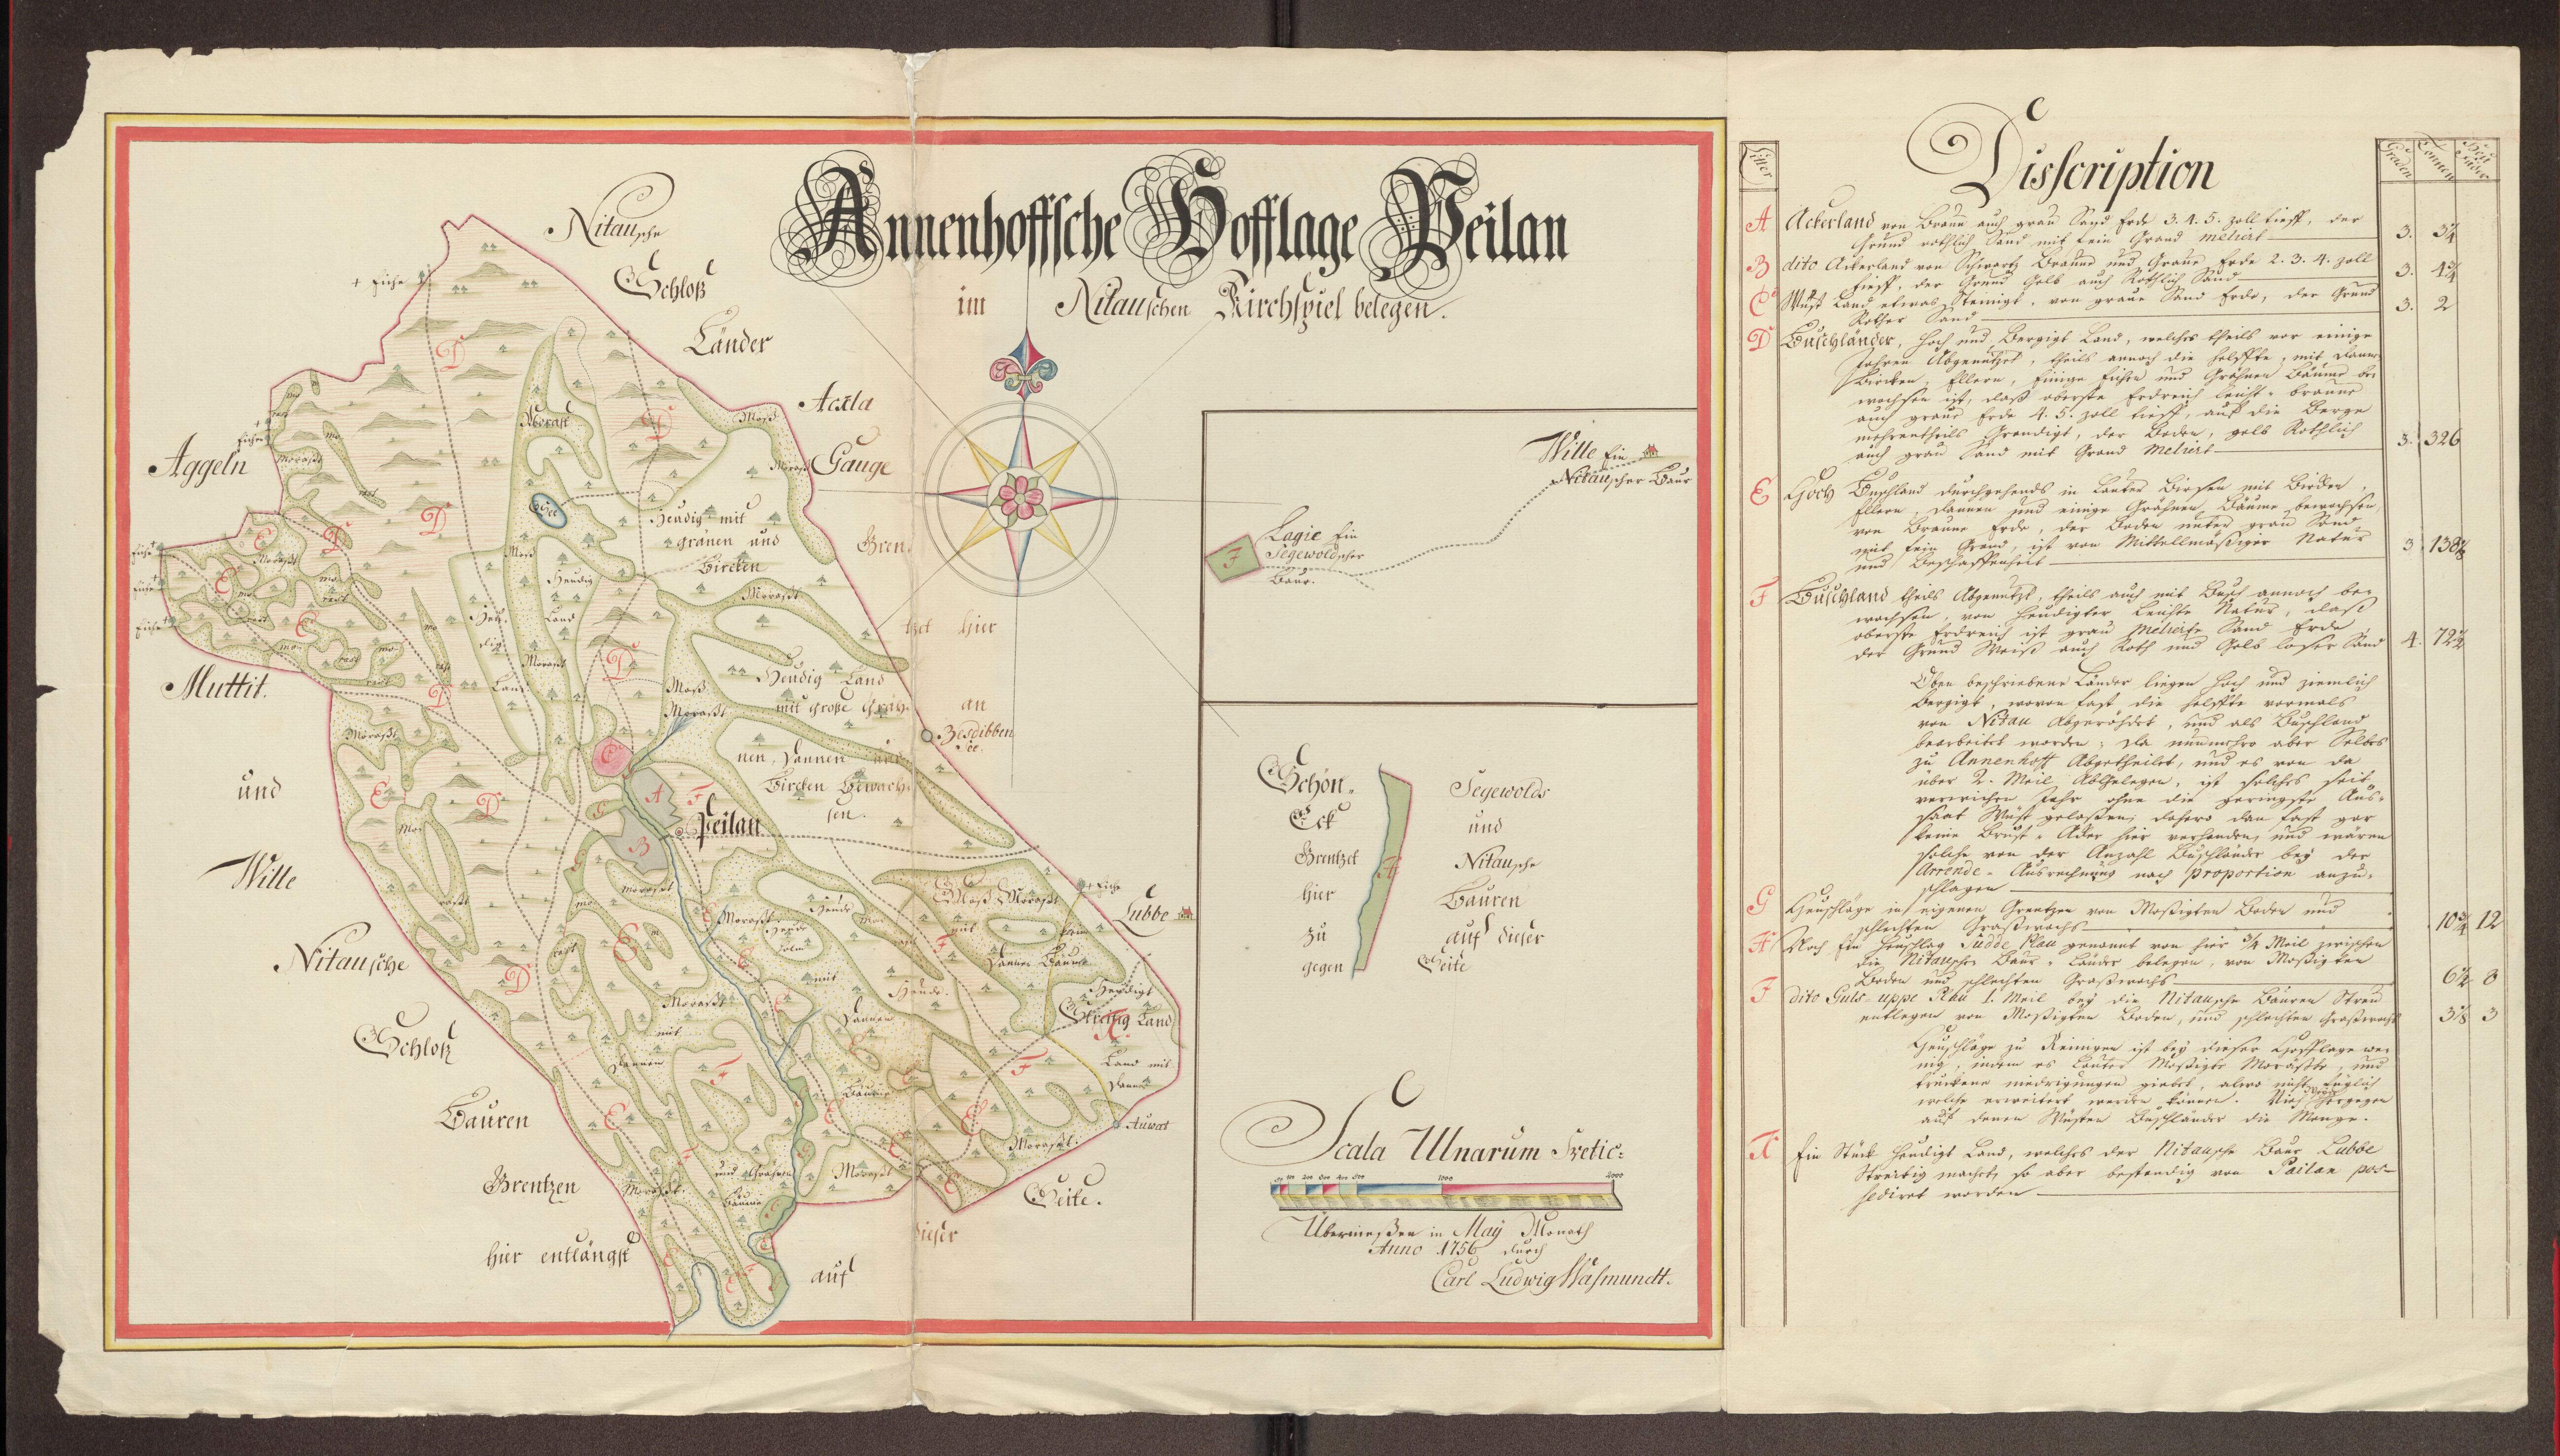 Annenhoffsche Hofflage Peilan
im Nitauschen Kirchspiel belegen.
Nitausche
Schloß
Länder
Acxla
Gauge
Gren
tzet hier
an
Besdibben
See.
+ Eiche
Aggeln
Muttit.
und
Wille
Nitausche
Schloß
Bauren
Grentzen
hier entlängst
auf
dieser
Seite.
Auwat
Lubbe
+ Eiche
Morast
See
Moß
Morast
Heudig mit
gränen und
Bircken
Heudig
Land
Morast
Moß
Morast
Heudig Land
mit große Gräh,
nen, Dannen und
Bircken bewach,
sen.
Peilan
Moß Morast
mit
Dannen Bäume
Heudigt
Streitig Land
Land mit
Danne
Morast
mit
Dannen
Bäume
und Grähnen
Bäume
Morast
Morast.
Wille Ein
Nitauscher Baur
Lagie Ein
Segewoldscher
Baur.
Schön,
Eck
Grentzet
hier
zu
gegen
Segewolds
und
Nitausche
Bauren
auf dieser
Seite
Scala Ulnarum Svetic:
1000 2000
Übermeßen in May Monath
Anno 1756 durch
Carl Ludwig Hasmundt.
Disscription
Litter
Graden
Tonnen
A Ackerland von Braun auch grau Sand Erde 3. 4. 5. zoll tieff, der
Grund röthlich Sand mit fein Grand melirt 3.
B dito Ackerland von Schwartz Braune und Graue Erde 2. 3. 4. zoll
tieff, der Grund Gelb auch Röthlich Sand 3.
C Wüst Land etwas Steinigt, von graue Sand Erde, der Grund
Rother Sand 3. 2
D Buschländer, Hoch und Bergigt Land, welches theils vor einige
Jahren Abgenützet, theils annoch die helffte, mit Dann
Bircken, Ellern, Einige Eichen und Grähnen Bäume be,
wachsen ist, daß oberste Erdreich leicht, braune
auch graue Erde 4. 5. zoll tieff, auf die Berge
mehrentheils Grandigt, der Boden, gelb Röthlich
auch grau Sand mit Grand Melirt 3. 326
E Hoch Buschland durchgehends in lauter Birsen mit Bircken,
Ellern, Dannen und einige Grähnen Bäume bewachsen,
von Braune Erde, der Boden unter grau Sand
mit fein Grand, ist von Mittellmäßiger Natur
und Beschaffenheit 3 138½
F Buschland theils Abgenützt, theils auch mit Busch annoch be,
wachsen, von Heudigter leichte Natur, daß
oberste Erdreich ist grau Melirte Sand Erde
der Grund Weiß auch Roth und Gelb loser Sand 4. 72½
Oben beschriebene Länder liegen hoch und ziemlich
Bergigt, wovon fast die helffte vormals
von Nitau Abgeröhdet, und als Buschland
bearbeitet worden; da nunmehro aber Selbes
zu Annenhoff Abgetheilet, und es von da
über 2. Meil Abgelegen, ist solches seit
verwichen Jahr ohne die geringste Aus,
saat Wüst gelaßen, dahero dan fast gar
keine Brust, Äcker hier verhanden, und wären
solche von der Anzahl Buschländer bey der
Arrende, Ausrechnung nach proportion anzu,
schlagen
G Heuschläge in eigenen Grentzen von Moßigten Boden und
schlechten Graßwachs 10¾ 12
H Noch Ein Heuschlag Sudde Plau genannt von hier ¾ Meil zwischen
die Nitausche Baur, Länder belegen, von Moßigten
Boden und schlechten Graßwachs 6½ 8
J dito Guls-uppe Plau 1. Meil bey die Nitausche Bauren Streu
entlegen von Moßigten Boden, und schlechten Graßwachs 3⅛ 3
Heuschläge zu Reinigen ist bey dieser Hofflage we,
nig, indem es lauter Moßigte Moräste, und
truckene niedrigungen giebet, alwo nicht füglich
welche erweitert werden können. Vieh Weyde hergegen
auf denen Wüsten Buschländer die Menge.
K Ein Stück Heudigt Land, welches der Nitausche Baur Lubbe
Streitig machet, so aber bestendig von Pailan pos,
sediret worden